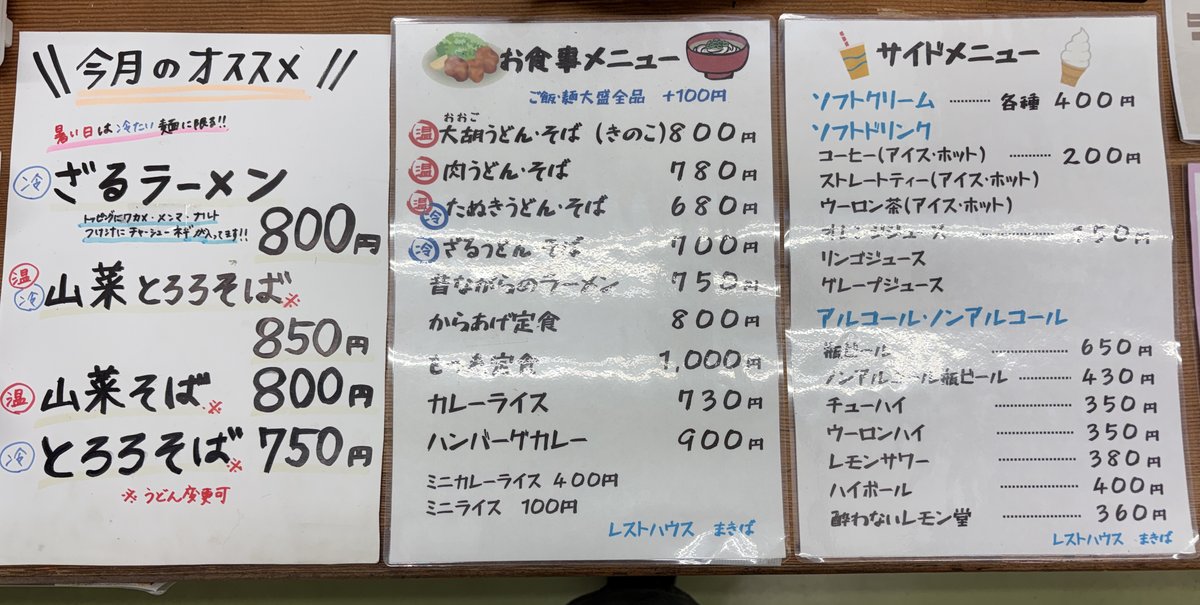 今月のオススメ
暑い日は冷たい麺に限る!!
冷 ざるラーメン
トッピングにワカメ・メンマ・ナルト
チャーシュー ネギが入ってます!!
800円
温 冷 山菜とろろそば※
850円
温 山菜そば※ 800円
冷 とろろそば※ 750円
※うどん変更可
お食事メニュー
ご飯・麺大盛全品 +100円
おおご
温 大胡うどん・そば (きのこ) 800円
温 肉うどん・そば 780円
温 冷 たぬきうどん・そば 680円
冷 ざるうどん・そば 700円
昔ながらのラーメン 750円
からあげ定食 800円
定食 1,000円
カレーライス 730円
ハンバーグカレー 900円
ミニカレーライス 400円
ミニライス 100円
レストハウス まきば
サイドメニュー
ソフトクリーム ………… 各種 400円
ソフトドリンク
コーヒー(アイス・ホット) ………… 200円
ストレートティー(アイス・ホット)
ウーロン茶(アイス・ホット)
オレンジジュース ………… 150円
リンゴジュース
グレープジュース
アルコール・ノンアルコール
瓶ビール ………… 650円
ノンアルコール瓶ビール ………… 430円
チューハイ ………… 350円
ウーロンハイ ………… 350円
レモンサワー ………… 380円
ハイボール ………… 400円
酔わないレモン堂 ………… 360円
レストハウス まきば